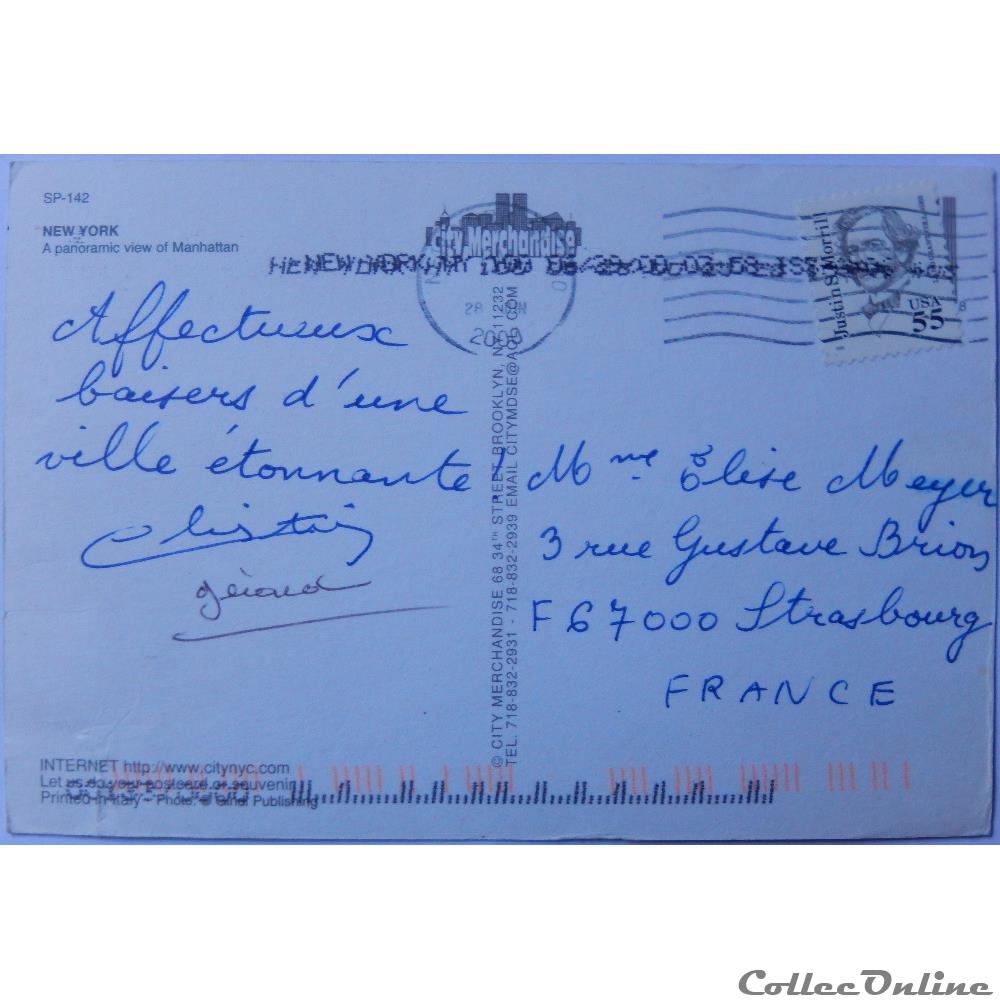 SP-142
NEW YORK
A panoramic view of Manhattan
City Merchandise
28 JUN
2000
Justin S. Morrill
USA
55
Affectueux
baisers d'une
ville étonnante!
gérard
© CITY MERCHANDISE 68 34TH STREET BROOKLYN, NY 11232
TEL. 718-832-2931 - 718-832-2939 EMAIL CITYMDSE@AOL.COM
Mme Elise Meyer
3 rue Gustave Brion
F 67000 Strasbourg
FRANCE
INTERNET http://www.citynyc.com
Let us do your postcard or souvenir
Printed in Italy - Photo: © Gindi Publishing
CollecOnline